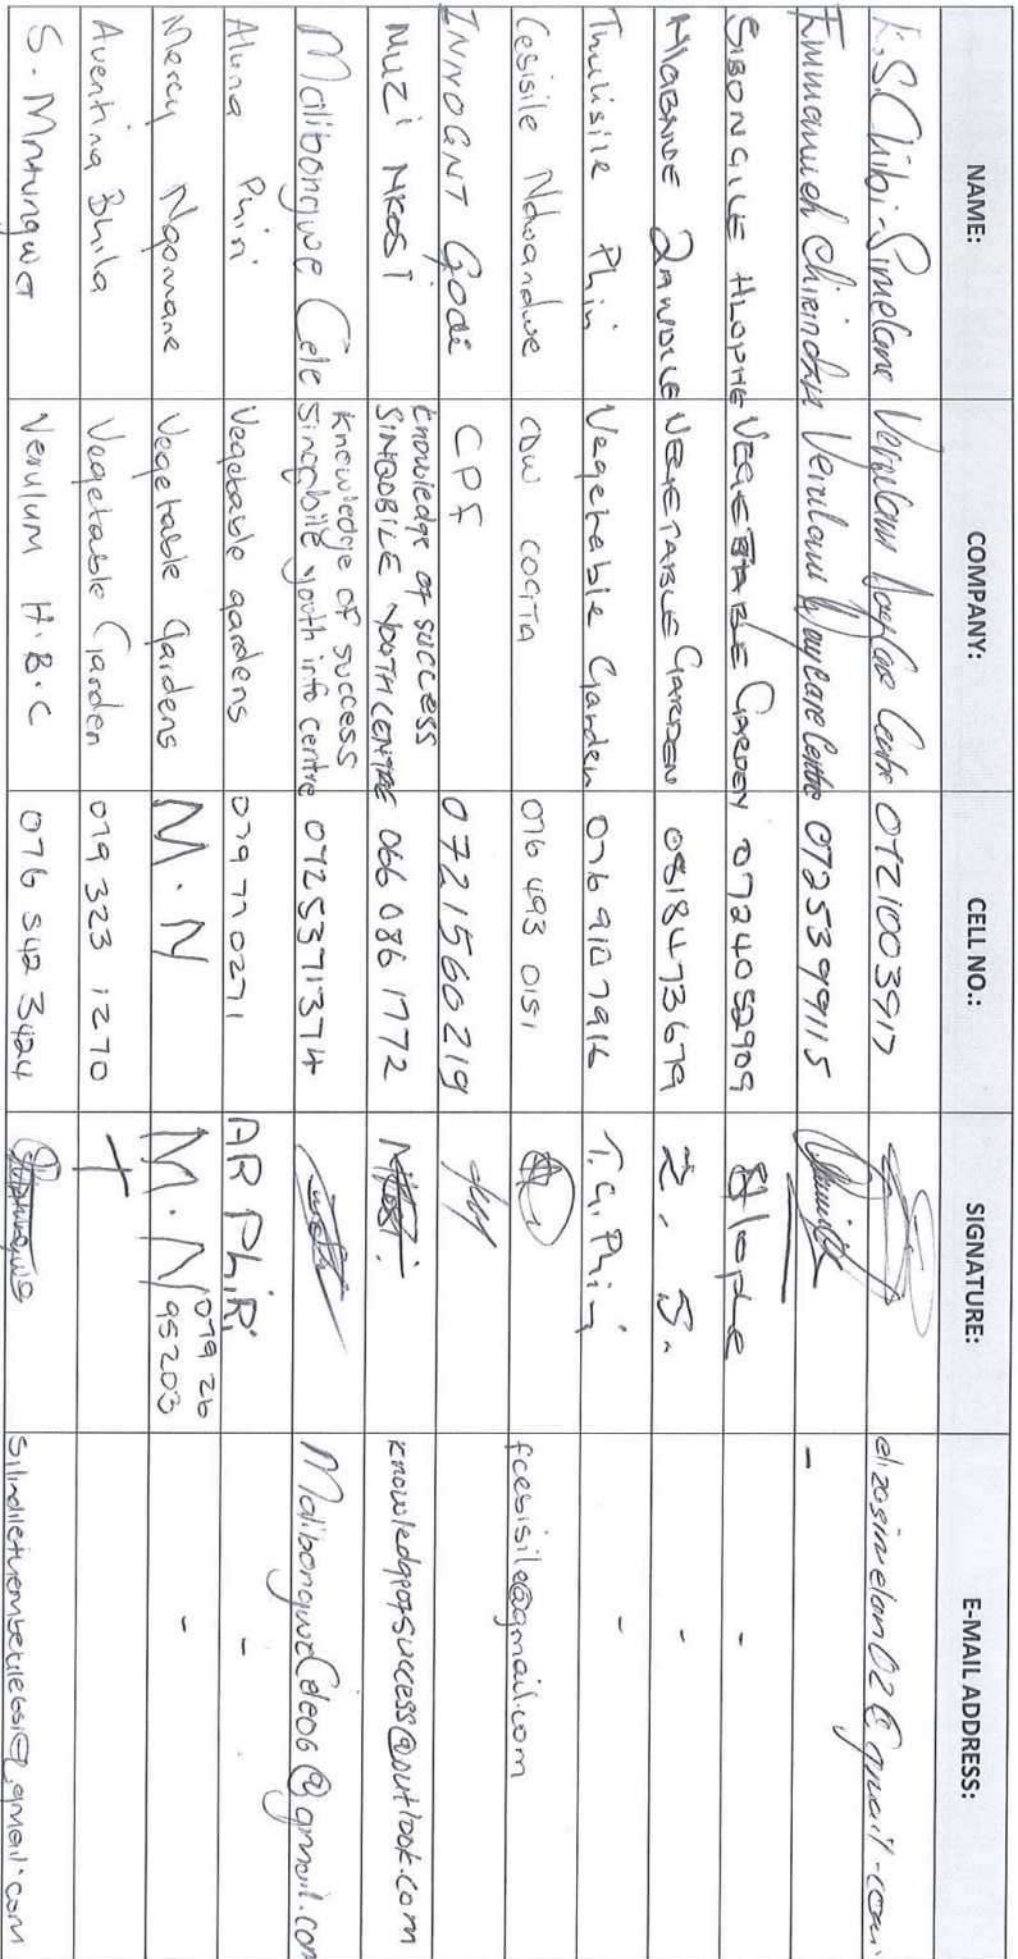 NAME: COMPANY: CELL NO.: SIGNATURE: E-MAIL ADDRESS:
Simelane Verulam DayCare Centre 0721003917
Verulam DayCare Centre 0725399115 -
SIBONGILE HLOPHE VEGETABLE GARDEN 0724052909 Hlophe -
HLABANE ZANDILE VEGETABLE GARDEN 0818473679 Z. S. -
Thulisile Phiri Vegetable Garden 076 910 7916 T.G. Phiri -
Cesisile Ndwandwe CDW COGTA 076 493 0151 fcebisile@gmail.com
INNOCENT Godi CPF 0721560219
MUZI NKOSI Knowledge of success SINQOBILE YOUTH CENTRE 066 086 1772 Nkosi. knowledgeofsuccess@outlook.com
Malibongwe Cele Knowledge of success Sinqobile youth info centre 0725371374 MalibongweCele06@gmail.com
Aluna Phiri Vegetable gardens 079770271 AR PhiRi -
Mercy Ngomane Vegetable Gardens M.N M.N 079 26 95203 -
Aventina Bhila Vegetable Garden 079 323 1270 +
S. Mntungwa Verulum H.B.C 076 542 3424